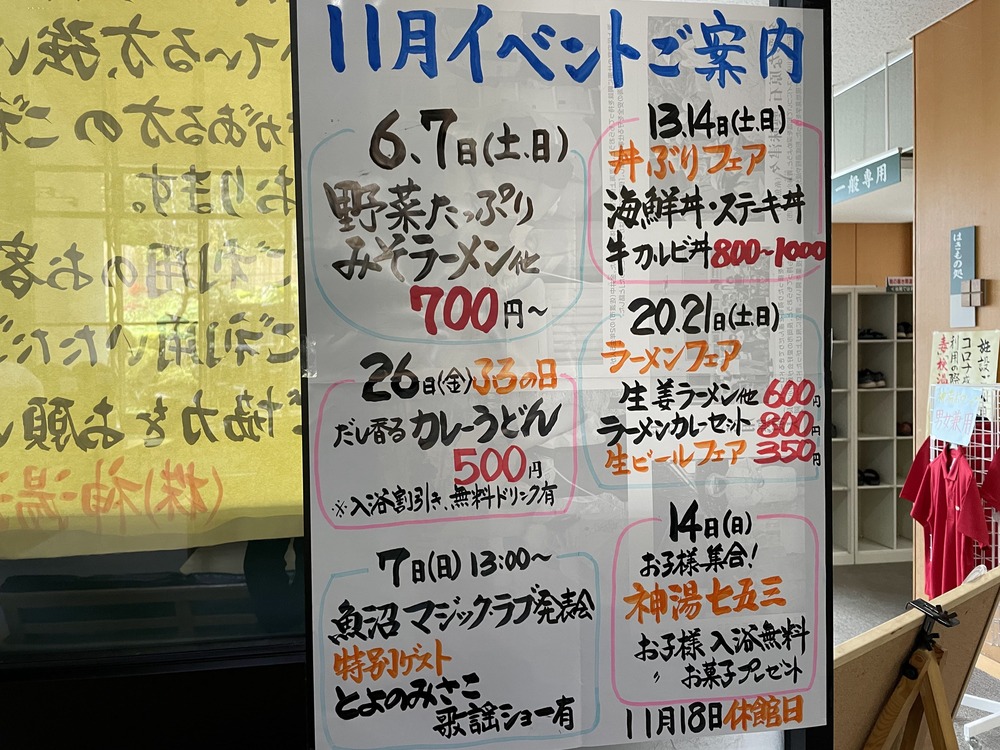 11月イベントご案内
6、7日(土、日)
野菜たっぷり
みそラーメン他
700円〜
13.14日(土.日)
丼ぶりフェア
海鮮丼・ステーキ丼
牛カルビ丼800〜1000
20.21日(土.日)
ラーメンフェア
生姜ラーメン他 600円
ラーメンカレーセット 800円
生ビールフェア 350円
26日(金)ふろの日
だし香るカレーうどん
500円
※入浴割引き、無料ドリンク有
7日(日) 13:00〜
魚沼マジックラブ発表会
特別ゲスト
とよのみさこ
歌謡ショー有
14日(日)
お子様集合!
神湯七五三
お子様入浴無料
〃 お菓子プレゼント
11月18日休館日
ている方、強い
がある方のご利
おります。
ご利用のお客
ご利用いただ
ご協力をお願い
(株)神湯
一般専用
はきもの処
施設
コロナ
利用の際
男女兼用